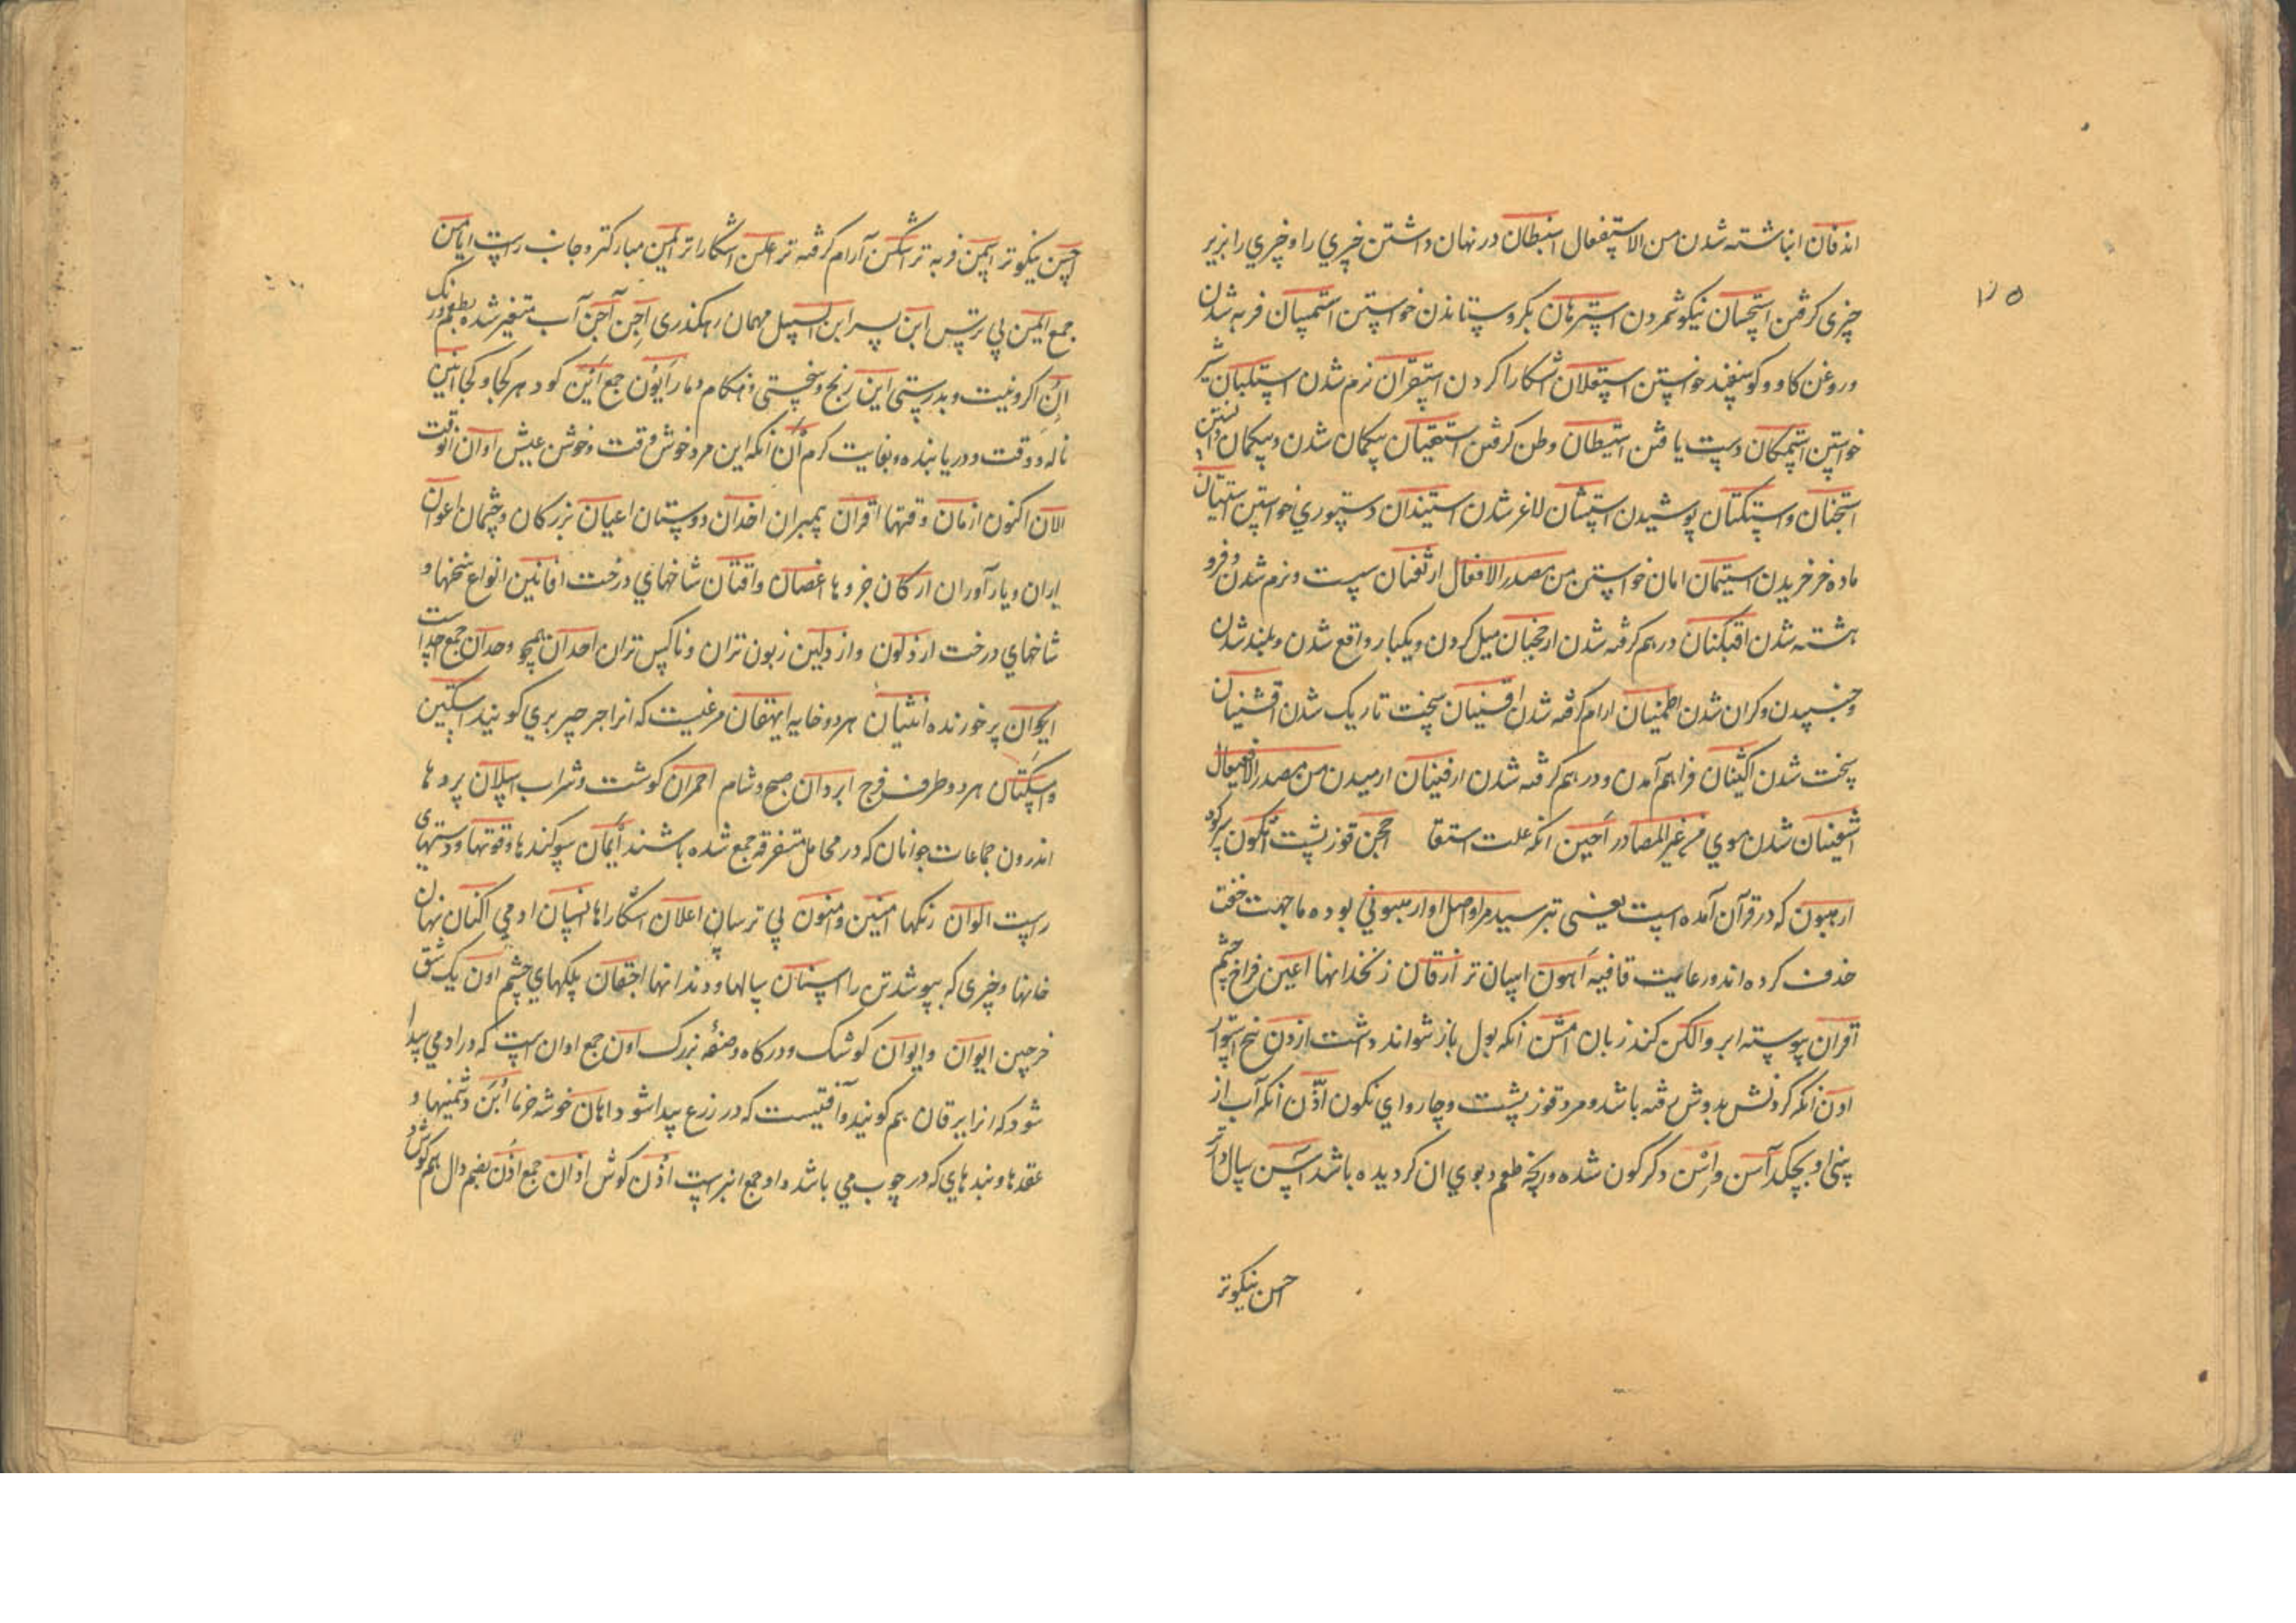 اندفان انباشته شدن من الاستفعال استبطان در نهان داشتن چیزی را و چیزی را بزیر
۱۲۵
چیزی گرفتن استحسان نیکو شمردن استرهان بگرو ستاندن خواستن استسمان فربه شدن
و روغن کاو و کوسفند خواستن استعلان اشکارا کردن استقران نرم شدن استلبان شیر
خواستن استمکان دست یافتن استیطان وطن کرفتن استیقان بیکمان شدن و بیکمان دانستن
استجنان و استکنان پوشیدن استشنان لاغر شدن استیذان دستوری خواستن استیتان
ماده خر خریدن استیمان امان خواستن من مصدر الافعلال ارثعنان سست و نرم شدن و فرو
هشته شدن اقبئنان درهم کرفته شدن ارجحنان میل کردن و یکبار واقع شدن و بلند شدن
و جنبیدن و کران شدن اطمنان ارام کرفته شدن سخت تاریک شدن
سخت شدن فراهم آمدن و درهم کرفته شدن ارفینان ارمیدن من مصدر الافعیعال
شدن موی من غیر المصادر احبن انکه علت استسقا احجن قوز پشت
ارهبون که در قرآن آمده است یعنی بترسید مرا و اصل او ارهبونی بوده ما جهت خفت
حذف کرده اند و رعایت قافیه اهون اسان تر ارقان زنخدانها اعین فراخ چشم
اقران پیوسته ابرو الکن کند زبان امثن انکه بول باز نتواند داشت
اون انکه کردنش بدوش رفته باشد و مرد قوز پشت و چاروای نکون اذن انکه آب از
بینی او بچکد آسن و اسن دکرکون شده و ریخه طعم و بوی ان کردیده باشد
احسن نیکوتر
احسن نیکوتر اسمن فربه تر اسکن آرام کرفته تر اعلن اشکاراتر ایمن مبارکتر و جانب راست ایامن
جمع ایمن بی ترس ابن پسر ابن السبیل مهمان رهکذری اجن آجن آب متغیر شده بطعم و رنک
ان اکر و نیست و بدرستی این رنج و سختی و هنکام و مار ایون جمع این کو و هر کجا و کجا انین
ناله و وقت و دریابنده و بغایت کرم ان انکه این مرد خوش وقت و خوش عیش اوان انوقت
الان اکنون ازمان وقتها اقران همسران اخدان دوستان اعیان بزرکان و چشمان اعوان
یاران و یار آوران ارکان جزوها اغصان و افنان شاخهای درخت افانین انواع سخنها و
شاخهای درخت ارذلون و ارذلین زبون تران و ناکس تران احدان همچو وحدان جمع احداست
ایکوان پرخورنده انثیان هر دو خایه ایهقان مرغیست که انرا جرجیر بری کویند اسکتین
و اسکتان هر دو طرف فرج ابردان صبح و شام احمران کوشت و شراب اسلان پردها
اندرون جماعات جوانان که در محامل متفرقه جمع شده باشند ایمان سوکندها و قوتها و دستهای
راست الوان رنکها امنین و امنون بی ترسان اعلان اشکاراها انسان ادمی اکنان نهان
خانها و چیزی که بپوشد تن را اسنان سالها و دندانها اجفان پلکهای چشم اون یک شق
خرجین ایوان و ایوان کوشک و درکاه و صفه بزرک اون جمع اوان است که در ادمی پیدا
شود که انرا یرقان هم کویند و آفتیست که در زرع پیدا شود اهان خوشه خرما ابن دشمنیها و
عقدها و بندهای که در چوب می باشد و او جمع ابنه است اذن کوش اذان جمع اذن بضم دال هم کوش